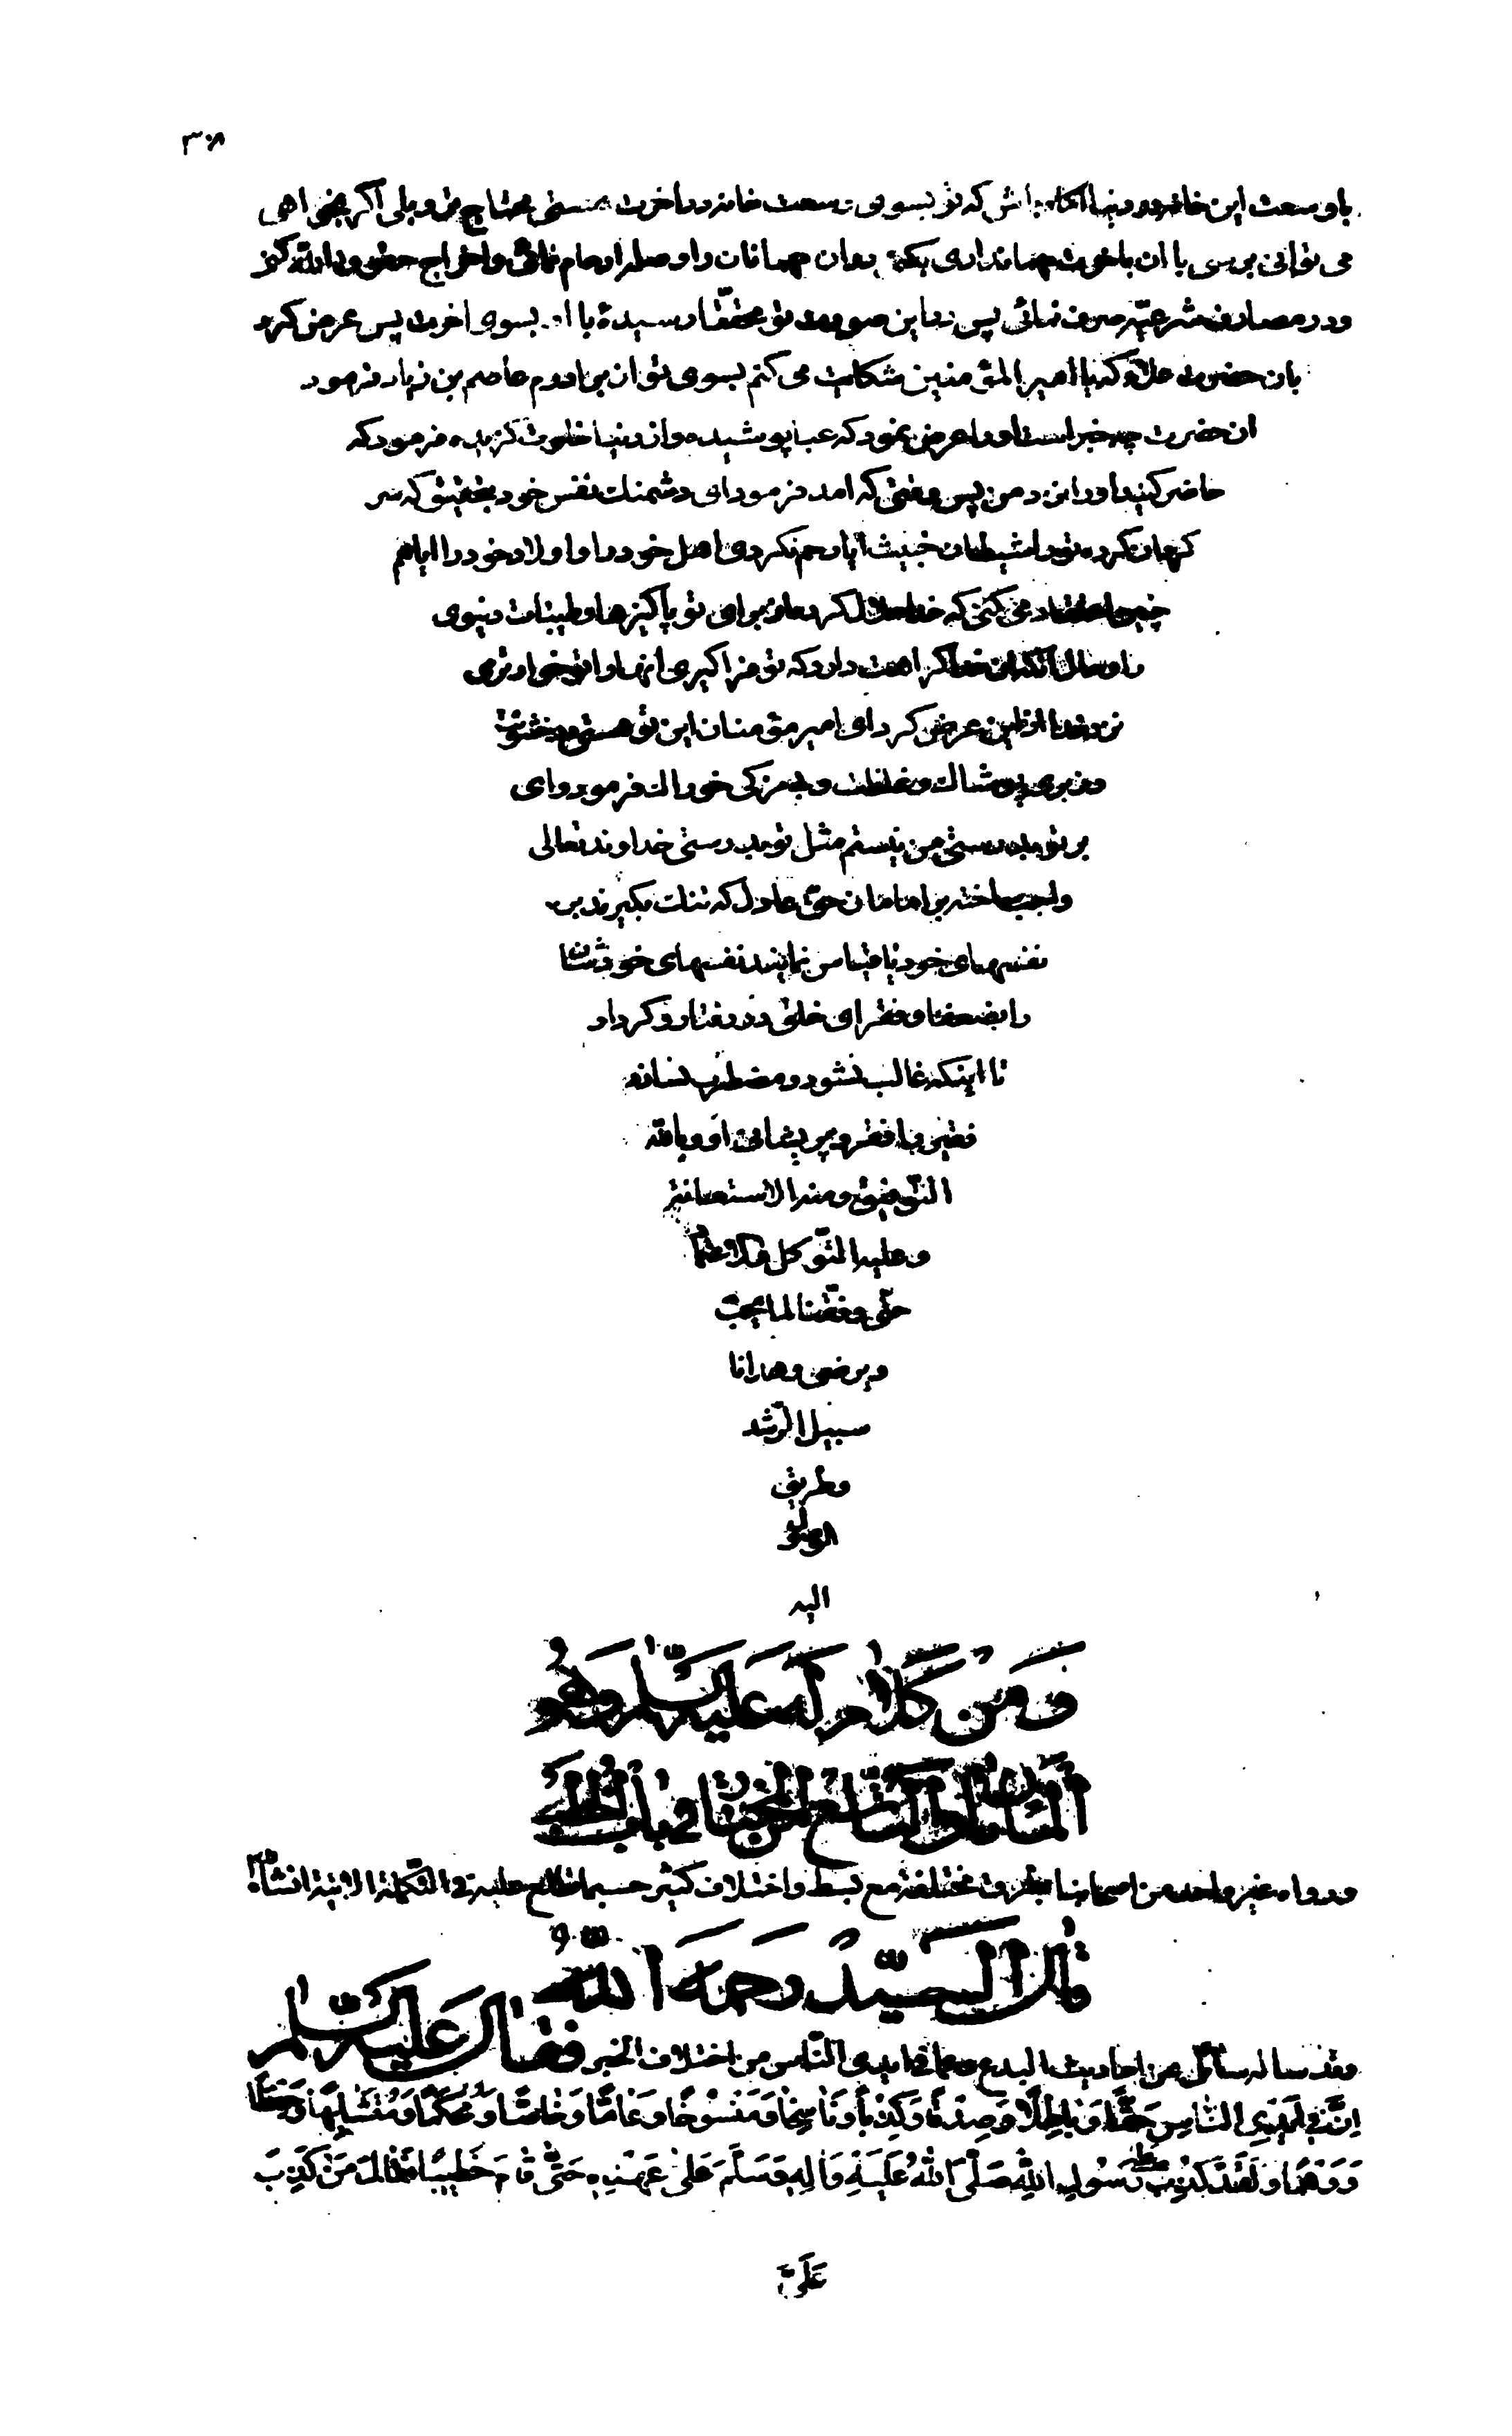 ۳۰۸
با وسعت این خانه در دنیا آگاه باش که تو بسوی وسعت خانه در اخرت هستی محتاج تر و بلی اگر بخواهی
می توانی برسی با ان باخرت مهمانداری بکنی در ان مهمانان را و صله ارحام نمائی و اخراج حقوق واجبه کنی
و در مصارف شرعیّه صرف نمائی پس در این صورت تو محقّقا رسیدهٔ با ان بسوی اخرت پس عرض کرد
بان حضرت علاء که یا امیر المؤمنین شکایت می کنم بسوی تو از برادرم عاصم بن زیاد فرمود
ان حضرت چه خبر است او را عرض نمود که عبا پوشیده و از دنیا خلوت گزیده فرمود که
حاضر کنید او را نزد من پس وقتی که امد فرمود ای دشمنک نفس خود بتحقیق که سر
کردان کرده تو را شیطان خبیث ایا رحم نکردی اهل خود را و اولاد خود را ایا هم
چنین اعتقاد می کنی که خدا حلال کرده از برای تو پاکیزها و طیّبات دنیوی
را و حال انکه ان خدا کراهت دارد که تو فرا گیری انها را تو خوارتری
نزد خدا از این عرض کرد ای امیر مؤمنان این تو هستی در خشونت
و زبری پوشاک و غلظت و بی مزکی خوراک فرمود وای
بر تو بدرستی من نیستم مثل تو بدرستی خداوند تعالی
واجب ساخته بر امامان حق عادل که تنک بگیرند بر
نفسهای خود تا قیاس نمایند نفسهای خودشان
را بضعفا و فقرای خلق در رفتار و کردار
تا اینکه غالب نشود و مضطرب نسازد
فقیر را فقر و پریشانی او و باللّه
التّوفیق و منه الاستعانة
و علیه التّوکل
حتّی وفّقنا لما یحبّ
و یرضی و هدانا
سبیل الرّشد
و طریق
الوصول
الیه
وَمِنْ كَلامٍ لَهُ عَلَيْهِ السَّلامُ وَهُوَ
الْمِأَتانِ وَالتّاسِعُ مِنَ الْمُخْتارِ فى بابِ الْخُطَبِ
ورواه غير واحد من اصحابنا بطرق مختلفة مع بسط و اختلاف كثير حسبما تطّلع عليه فى التّكملة الاتية انشاء الله
قالَ السَّيِّدُ رَحِمَهُ اللّهُ
وقد ساله سائل عن احاديث البدع و عمّا فى ايدى النّاس من اختلاف الخبر فَقالَ عَلَيْهِ السَّلامُ
اِنَّ فى اَيْدِى النّاسِ حَقًّا وَ باطِلًا وَ صِدْقًا وَ كِذْبًا وَ ناسِخًا وَ مَنْسُوخًا وَ عامًّا وَ خاصًّا وَ مُحْكَمًا وَ مُتَشابِهًا وَ حِفْظًا
وَ وَهْمًا وَ لَقَدْ كُذِبَ عَلى رَسُولِ اللّهِ صَلَّى اللّهُ عَلَيْهِ وَ الِهِ وَ سَلَّمَ عَلى عَهْدِهِ حَتّى قامَ خَطيبًا فَقالَ مَنْ كَذَبَ
عَلَىَّ